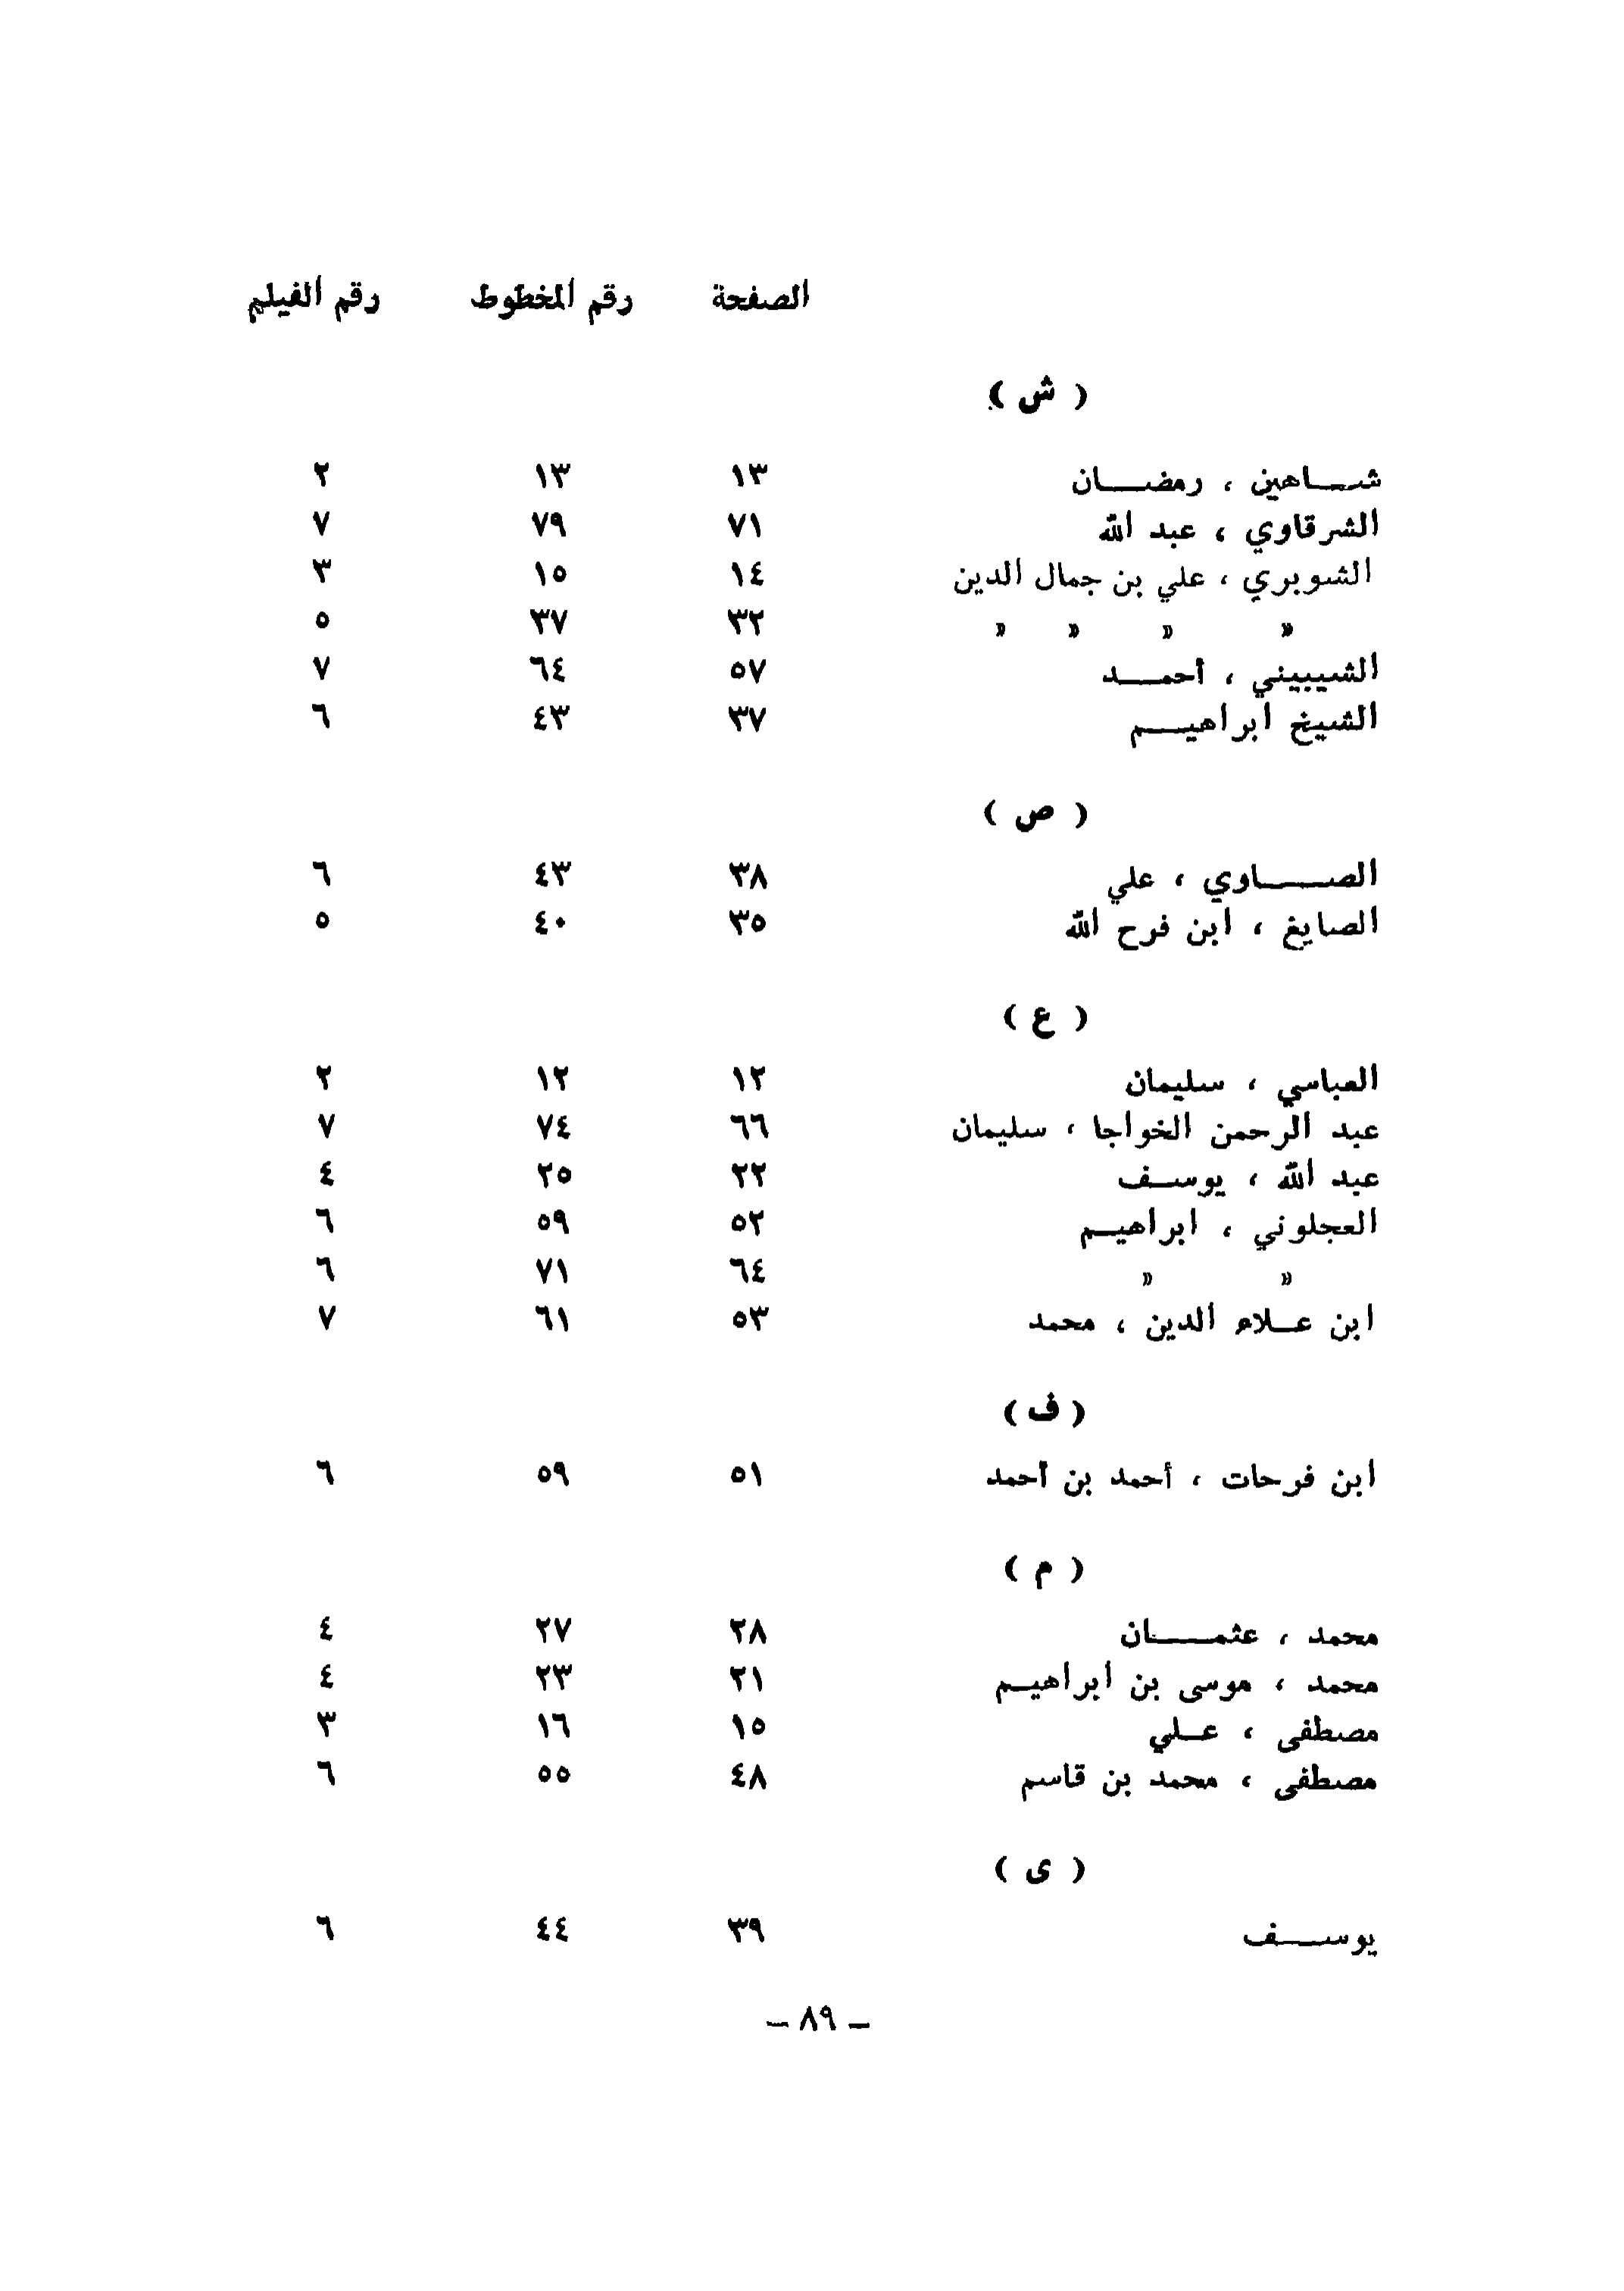 الصفحة رقم المخطوط رقم الفيلم
( ش )
شــاهين ، رمضــان ١٣ ١٣ ٢
الشرقاوي ، عبد الله ٧١ ٧٩ ٧
الشوبري ، علي بن جمال الدين ١٤ ١٥ ٣
» » » » ٣٢ ٣٧ ٥
الشيبيني ، أحمــد ٥٧ ٦٤ ٧
الشيخ ابراهيــم ٣٧ ٤٣ ٦
( ص )
الصــاوي ، علي ٣٨ ٤٣ ٦
الصايغ ، ابن فرح الله ٣٥ ٤٠ ٥
( ع )
العباسي ، سليمان ١٢ ١٢ ٢
عبد الرحمن الخواجا ، سليمان ٦٦ ٧٤ ٧
عبد الله ، يوسـف ٢٢ ٢٥ ٤
العجلوني ، ابراهيـم ٥٢ ٥٩ ٦
» » ٦٤ ٧١ ٦
ابن عـلاء الدين ، محمد ٥٣ ٦١ ٧
( ف )
ابن فرحات ، أحمد بن أحمد ٥١ ٥٩ ٦
( م )
محمد ، عثمــان ٢٨ ٢٧ ٤
محمد ، موسى بن ابراهيـم ٢١ ٢٣ ٤
مصطفى ، عـلي ١٥ ١٦ ٣
مصطفى ، محمد بن قاسم ٤٨ ٥٥ ٦
( ى )
يوســف ٣٩ ٤٤ ٦
– ٨٩ –